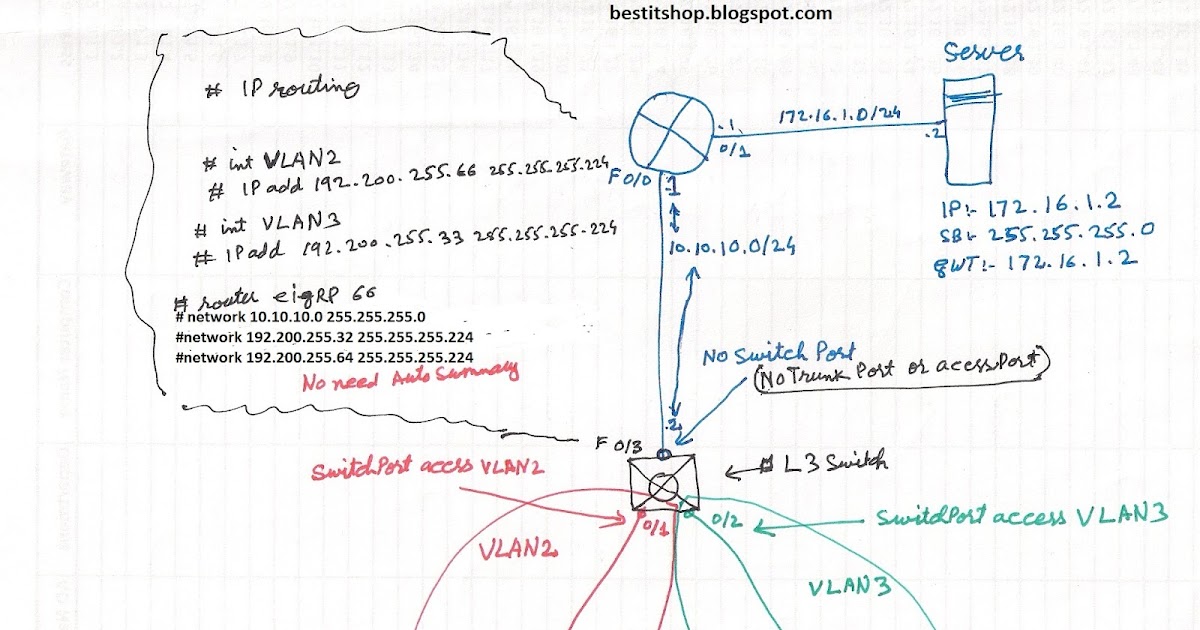 bestitshop.blogspot.com
# IP routing
# int VLAN2
# IP add 192.200.255.66 255.255.255.224
# int VLAN3
# IP add 192.200.255.33 255.255.255.224
# router eigRP 66
# network 10.10.10.0 255.255.255.0
#network 192.200.255.32 255.255.255.224
#network 192.200.255.64 255.255.255.224
No need Auto Summary
Server
172.16.1.0/24
.1
0/1
.2
F 0/0
.1
10.10.10.0/24
IP:- 172.16.1.2
SB:- 255.255.255.0
gWT:- 172.16.1.2
No Switch Port
(No Trunk Port or acessPort)
.2
F 0/3
# L3 Switch
SwitchPort acess VLAN2
0/1
0/2
SwitdPort access VLAN3
VLAN2
VLAN3